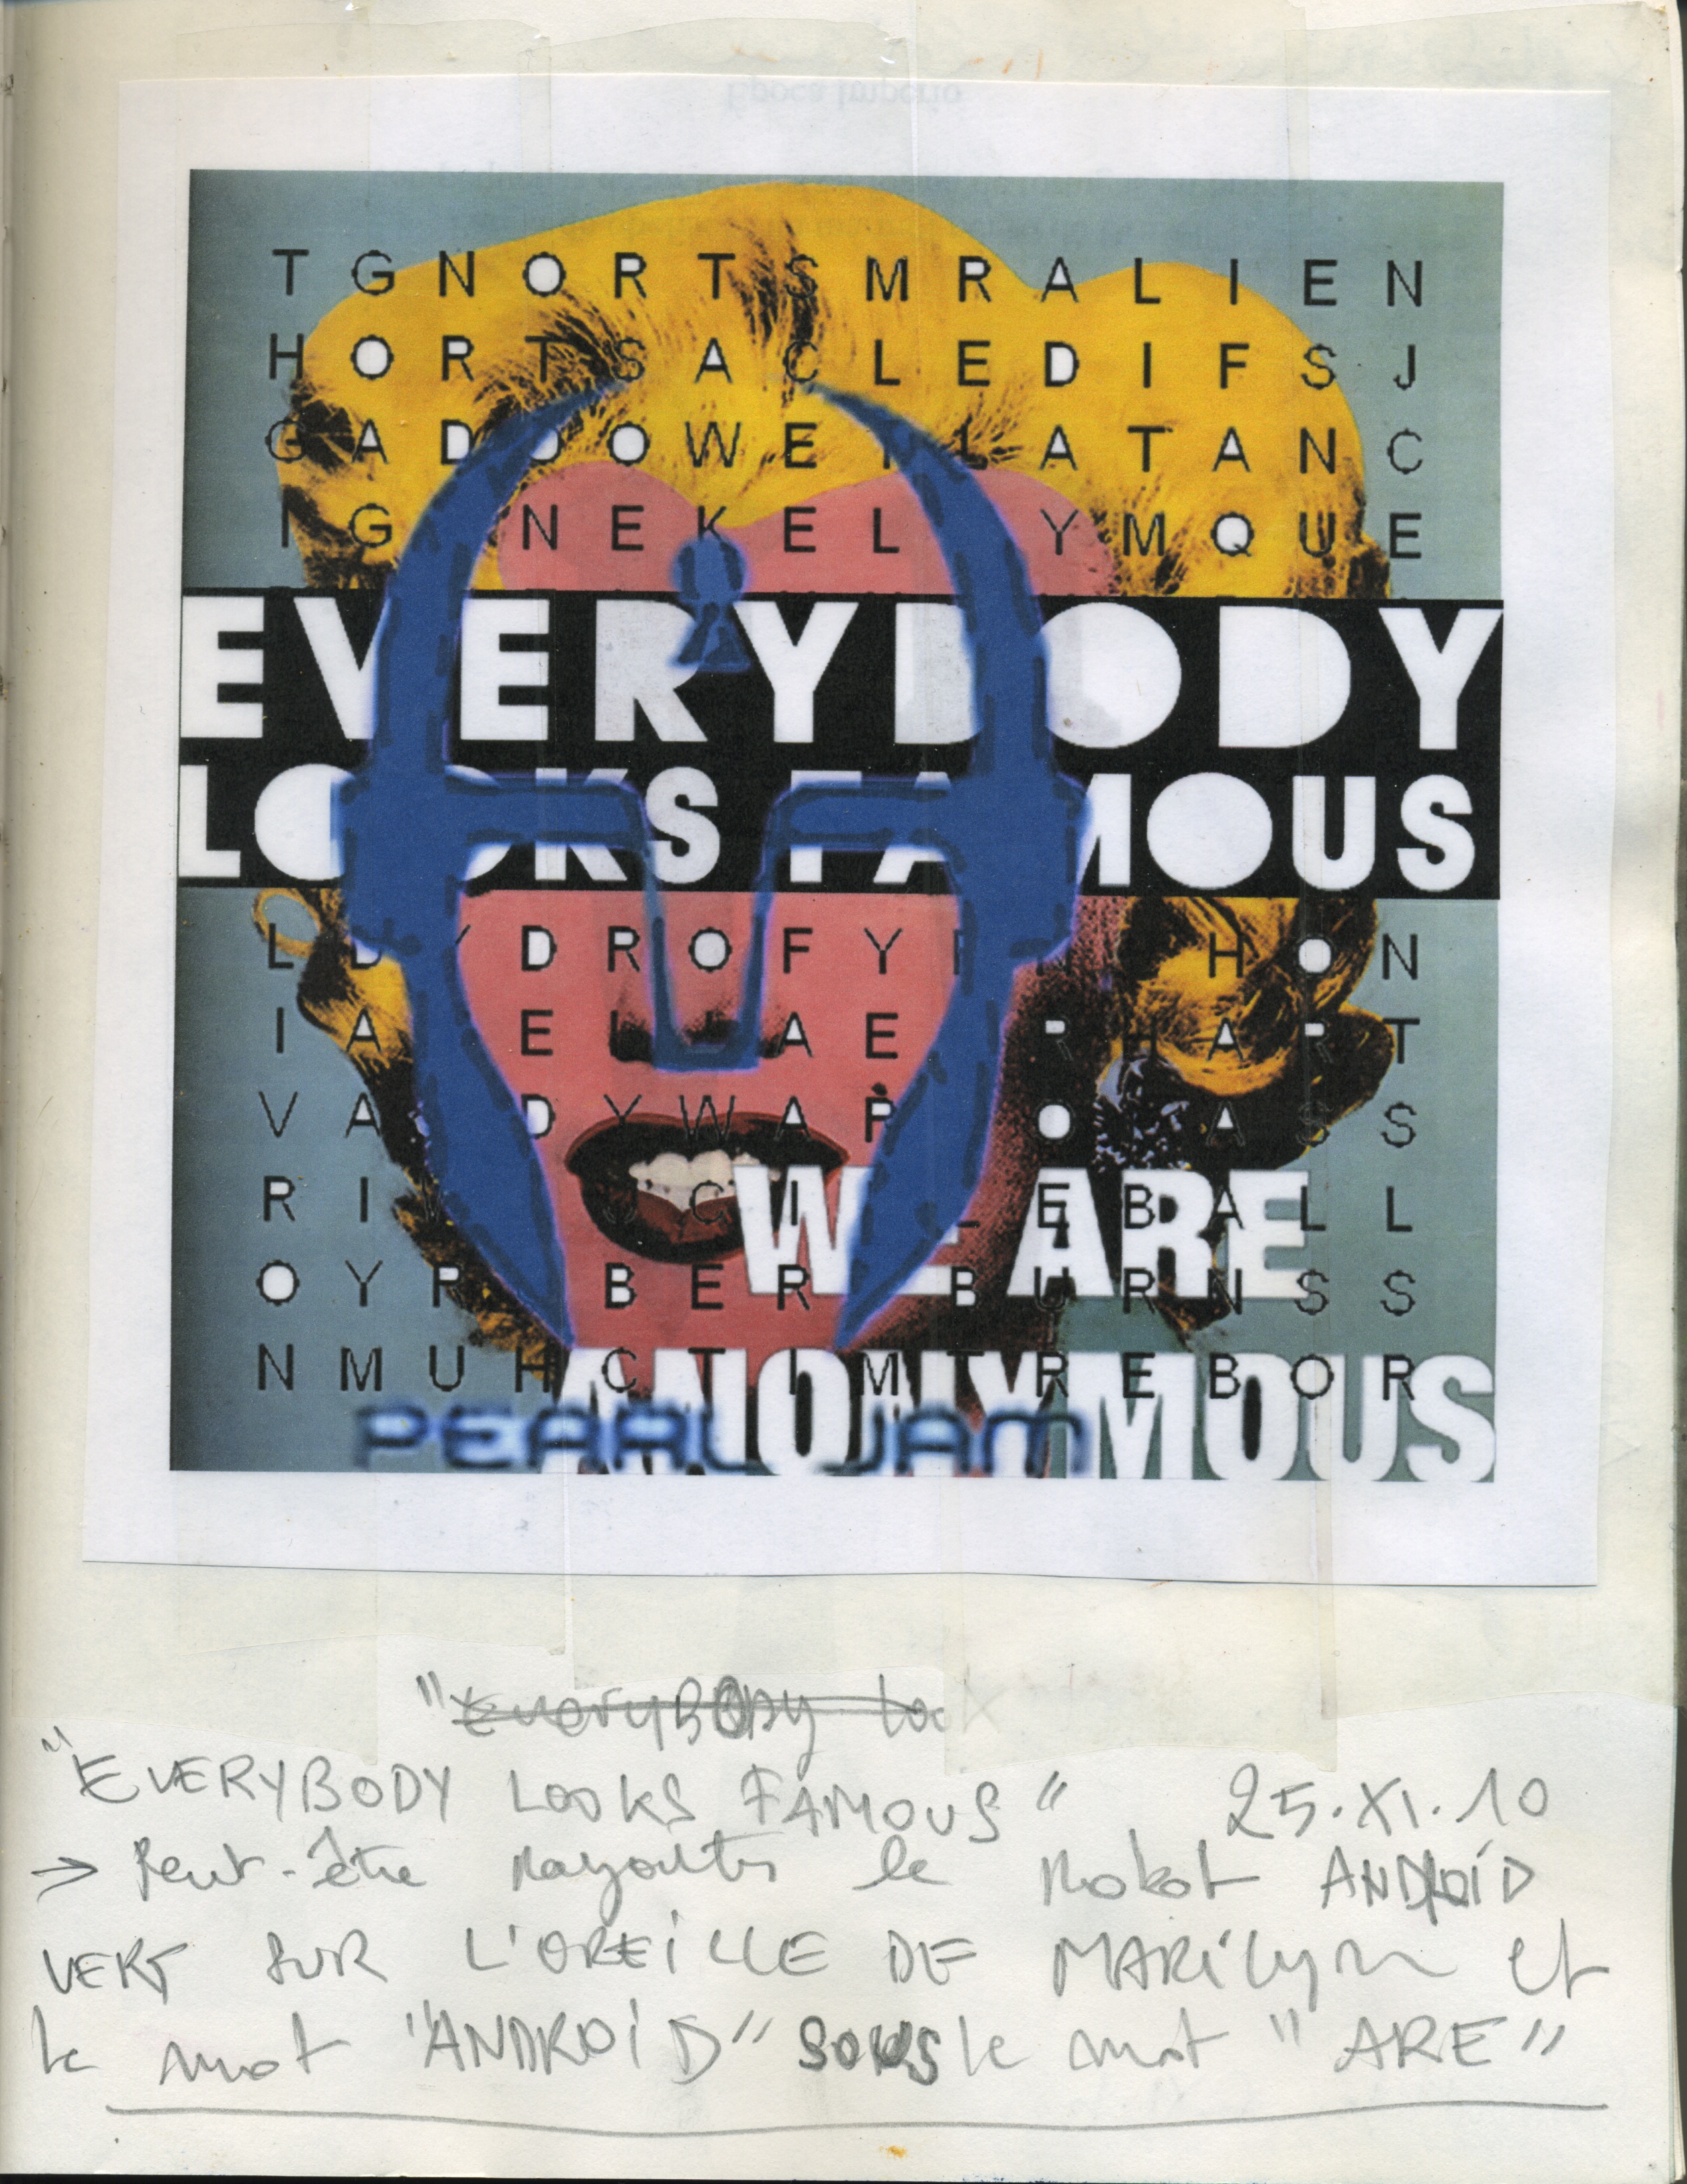 T G N O R T S M R A L I E N
H O R T S A C L E D I F S J
G A D D O W E Y L A T A N C
I G N E K E L Y M Q U E
EVERYBODY
LOOKS FAMOUS
L D Y D R O F Y R H O N
I A E L L A E R H A R T
V A D Y W A R O A S S
R I U C I L E B A L L
WE ARE
O Y R B E R B U R N S S
N M U H C T I M T R E B O R
ANONYMOUS
PEARL JAM
"EveryBody loo
"EVERYBODY LOOKS FAMOUS" 25.XI.10
→ Peut-être rajouter le Robot ANDROÏD
VERT SUR L'OREILLE DE MARilyn et
le mot "ANDROÏD" SOUS le mot "ARE"